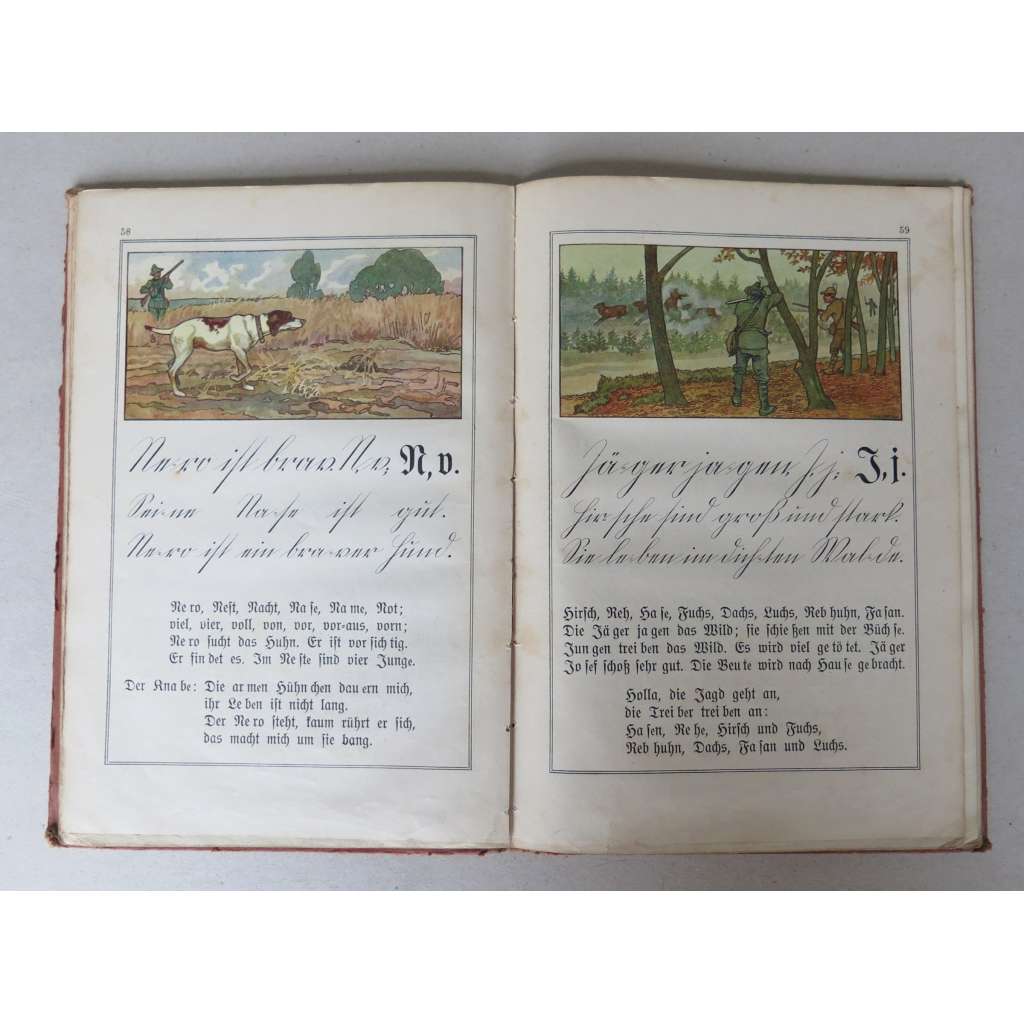 58
Ne-ro ist brav. N, v, N, v.
Sei-ne Na-se ist gut.
Ne-ro ist ein bra-ver Hund.
Ne ro, Nest, Nacht, Na se, Na me, Not;
viel, vier, voll, von, vor, vor-aus, vorn;
Ne ro sucht das Huhn. Er ist vor sich tig.
Er fin det es. Im Ne ste sind vier Junge.
Der Kna be: Die ar men Hühn chen dau ern mich,
ihr Le ben ist nicht lang.
Der Ne ro steht, kaum rührt er sich,
das macht mich um sie bang.
59
Jä-ger ja-gen. J, j. J, j.
Hir sche sind groß und stark.
Sie le-ben im dich-ten Wal-de.
Hirsch, Reh, Ha se, Fuchs, Dachs, Luchs, Reb huhn, Fa san.
Die Jä ger ja gen das Wild; sie schie ßen mit der Büch se.
Jun gen trei ben das Wild. Es wird viel ge tö tet. Jä ger
Jo sef schoß sehr gut. Die Beu te wird nach Hau se ge bracht.
Holla, die Jagd geht an,
die Trei ber trei ben an:
Ha sen, Re he, Hirsch und Fuchs,
Reb huhn, Dachs, Fa san und Luchs.